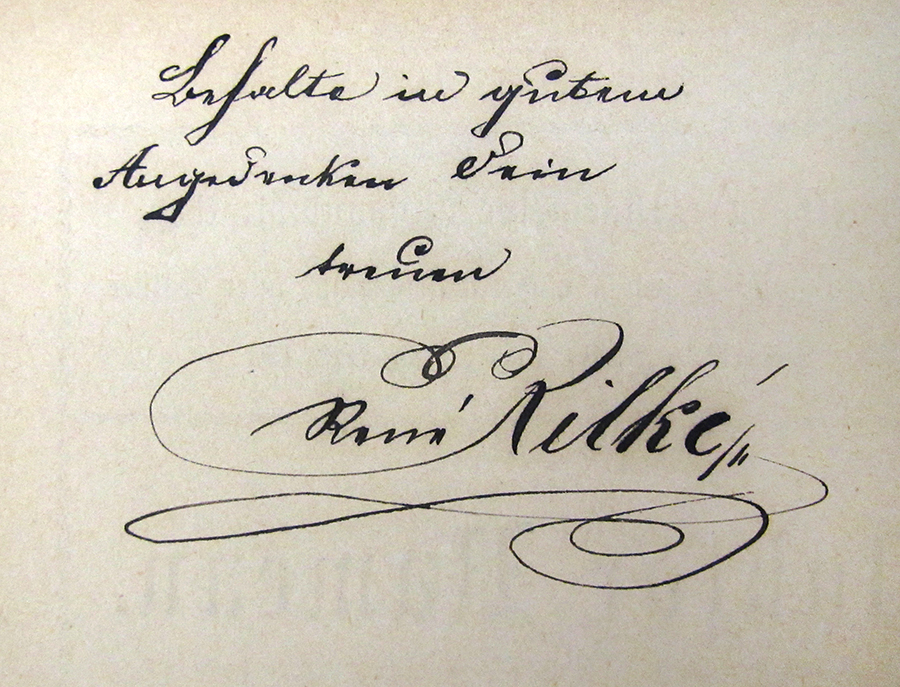 Behalte in gutem
Angedenken Dein
treuen
René Rilke